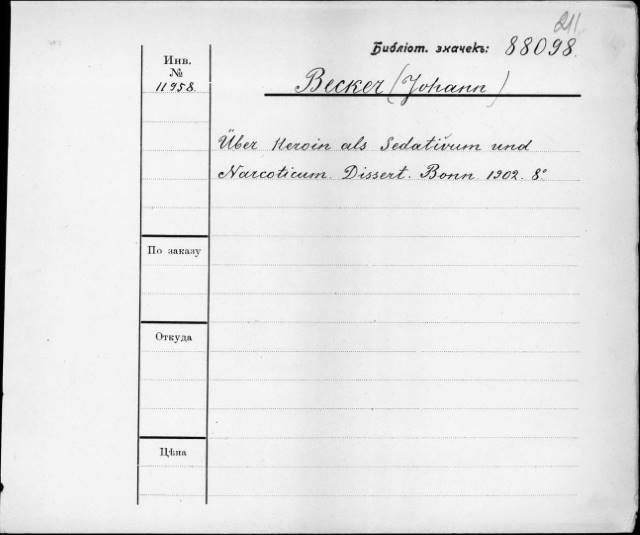 211
Библіот. значекъ: 88098.
Инв.
№
11958.
Becker (Johann)
Über Heroin als Sedativum und
Narcoticum. Dissert. Bonn. 1902. 8°
По заказу
Откуда
Цѣна